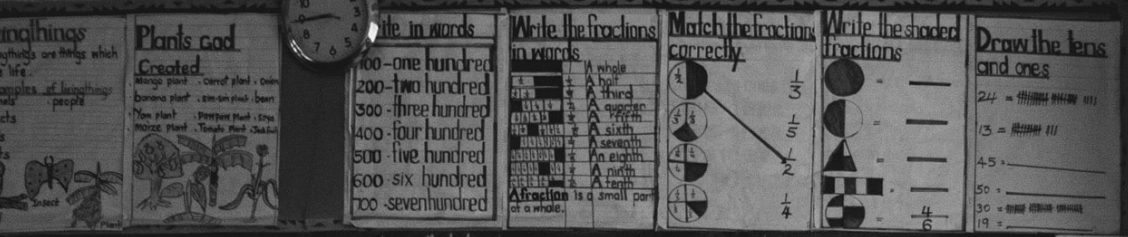 ingthings
ngthings are things which
e life.
amples of livingthings
people
Insect
Plants God
Created
Mango plant . Carrot plant .
banana plant . sim-sim plant . been
Yam plant . Pawpaw plant .
Maize Plant . Tomato Plant .
10
3
4
5
6
7
8
9
ite in words
100-one hundred
200-two hundred
300-three hundred
400-four hundred
500-five hundred
600-six hundred
700-sevenhundred
Write the fractions
in words
A whole
A half
A third
A quarter
A fifth
A sixth
A seventh
An eighth
A ninth
A tenth
A fraction is a small part
of a whole.
Match the fractions
correctly
1/2
1/3
1/5
1/2
1/4
Write the shaded
fractions
=
=
=
=
= 4/6
Draw the tens
and ones
24 =
13 =
45 =
50 =
30 =
19 =